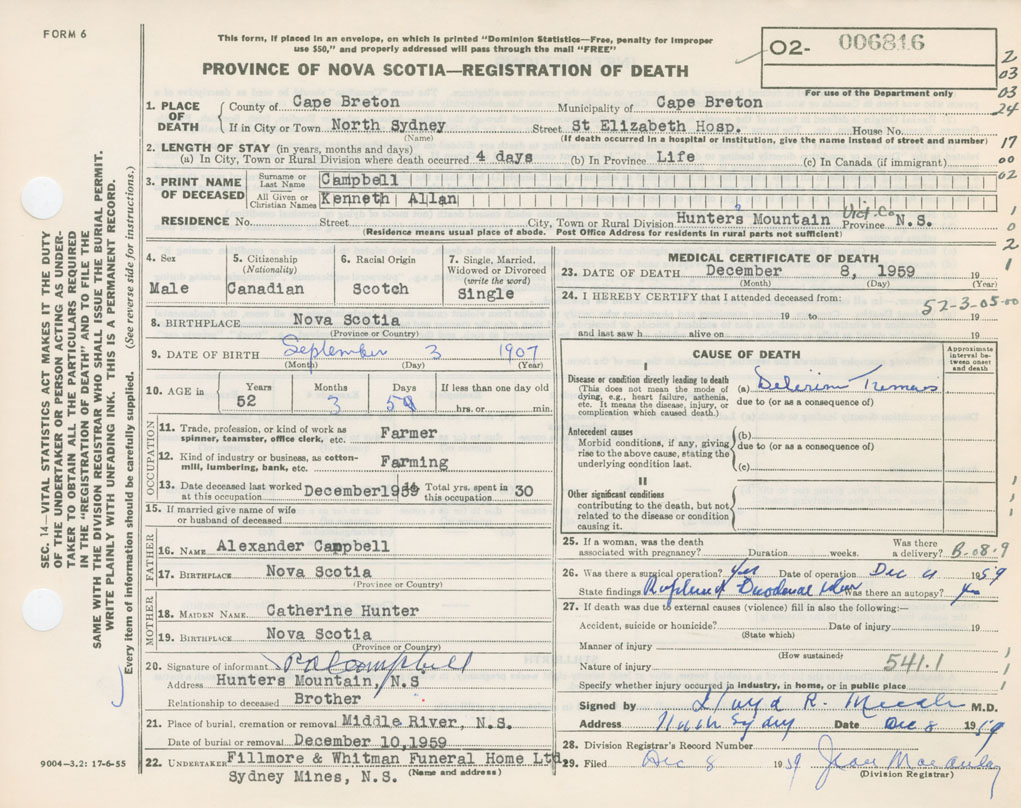 FORM 6
This form, if placed in an envelope, on which is printed "Dominion Statistics—Free, penalty for improper
use $50," and properly addressed will pass through the mail "FREE"
PROVINCE OF NOVA SCOTIA—REGISTRATION OF DEATH
O2- 006816
For use of the Department only
2
03
03
24
17
00
02
1
0
2
1
SEC. 14—VITAL STATISTICS ACT MAKES IT THE DUTY
OF THE UNDERTAKER OR PERSON ACTING AS UNDER-
TAKER TO OBTAIN ALL THE PARTICULARS REQUIRED
IN THE "REGISTRATION OF DEATH" AND TO FILE THE
SAME WITH THE DIVISION REGISTRAR WHO SHALL ISSUE THE BURIAL PERMIT.
WRITE PLAINLY WITH UNFADING INK. THIS IS A PERMANENT RECORD.
Every item of information should be carefully supplied. (See reverse side for instructions.)
1. PLACE OF DEATH
County of Cape Breton Municipality of Cape Breton
If in City or Town North Sydney Street St Elizabeth Hosp. House No.
(Name) (If death occurred in a hospital or institution, give the name instead of street and number)
2. LENGTH OF STAY (in years, months and days)
(a) In City, Town or Rural Division where death occurred 4 days (b) In Province Life (c) In Canada (if immigrant)
3. PRINT NAME OF DECEASED
Surname or Last Name Campbell
All Given or Christian Names Kenneth Allan
RESIDENCE No. Street City, Town or Rural Division Hunters Mountain Vict. Co Province N.S.
(Residence means usual place of abode. Post Office Address for residents in rural parts not sufficient)
4. Sex Male
5. Citizenship (Nationality) Canadian
6. Racial Origin Scotch
7. Single, Married, Widowed or Divorced (write the word) Single
8. BIRTHPLACE Nova Scotia
(Province or Country)
9. DATE OF BIRTH September 3 1907
(Month) (Day) (Year)
10. AGE in Years Months Days If less than one day old
52 3 5 hrs. or min.
OCCUPATION
11. Trade, profession, or kind of work as spinner, teamster, office clerk, etc. Farmer
12. Kind of industry or business, as cotton-mill, lumbering, bank, etc. Farming
13. Date deceased last worked at this occupation December 1959 Total yrs. spent in this occupation 30
15. If married give name of wife or husband of deceased
FATHER
16. NAME Alexander Campbell
17. BIRTHPLACE Nova Scotia
(Province or Country)
MOTHER
18. MAIDEN NAME Catherine Hunter
19. BIRTHPLACE Nova Scotia
(Province or Country)
20. Signature of informant Campbell
Address Hunters Mountain, N.S
Relationship to deceased Brother
21. Place of burial, cremation or removal Middle River, N.S.
Date of burial or removal December 10,1959
22. UNDERTAKER Fillmore & Whitman Funeral Home Ltd.
Sydney Mines, N.S. (Name and address)
9004—3.2: 17-6-55
MEDICAL CERTIFICATE OF DEATH
23. DATE OF DEATH December 8, 1959 19
(Month) (Day) (Year)
24. I HEREBY CERTIFY that I attended deceased from: 52-3-05-00
19 to 19
and last saw h alive on 19
CAUSE OF DEATH
Approximate interval between onset and death
I
Disease or condition directly leading to death
(This does not mean the mode of dying, e.g., heart failure, asthenia, etc. It means the disease, injury, or complication which caused death.)
(a) Delerium Tremens
due to (or as a consequence of)
Antecedent causes
Morbid conditions, if any, giving rise to the above cause, stating the underlying condition last.
(b)
due to (or as a consequence of)
(c)
II
Other significant conditions
contributing to the death, but not related to the disease or condition causing it.
25. If a woman, was the death associated with pregnancy? Duration weeks. Was there a delivery? B-08-9
26. Was there a surgical operation? Yes Date of operation Dec 4 1959
State findings Ruptured Duodenal Ulcer Was there an autopsy?
27. If death was due to external causes (violence) fill in also the following:—
Accident, suicide or homicide? Date of injury 19
(State which)
Manner of injury
(How sustained)
Nature of injury 541.1
Specify whether injury occurred in industry, in home, or in public place
Signed by Lloyd R. M.D.
Address North Sydney Date Dec 8 1959
28. Division Registrar's Record Number
29. Filed Dec 8 1959 Jean
(Division Registrar)